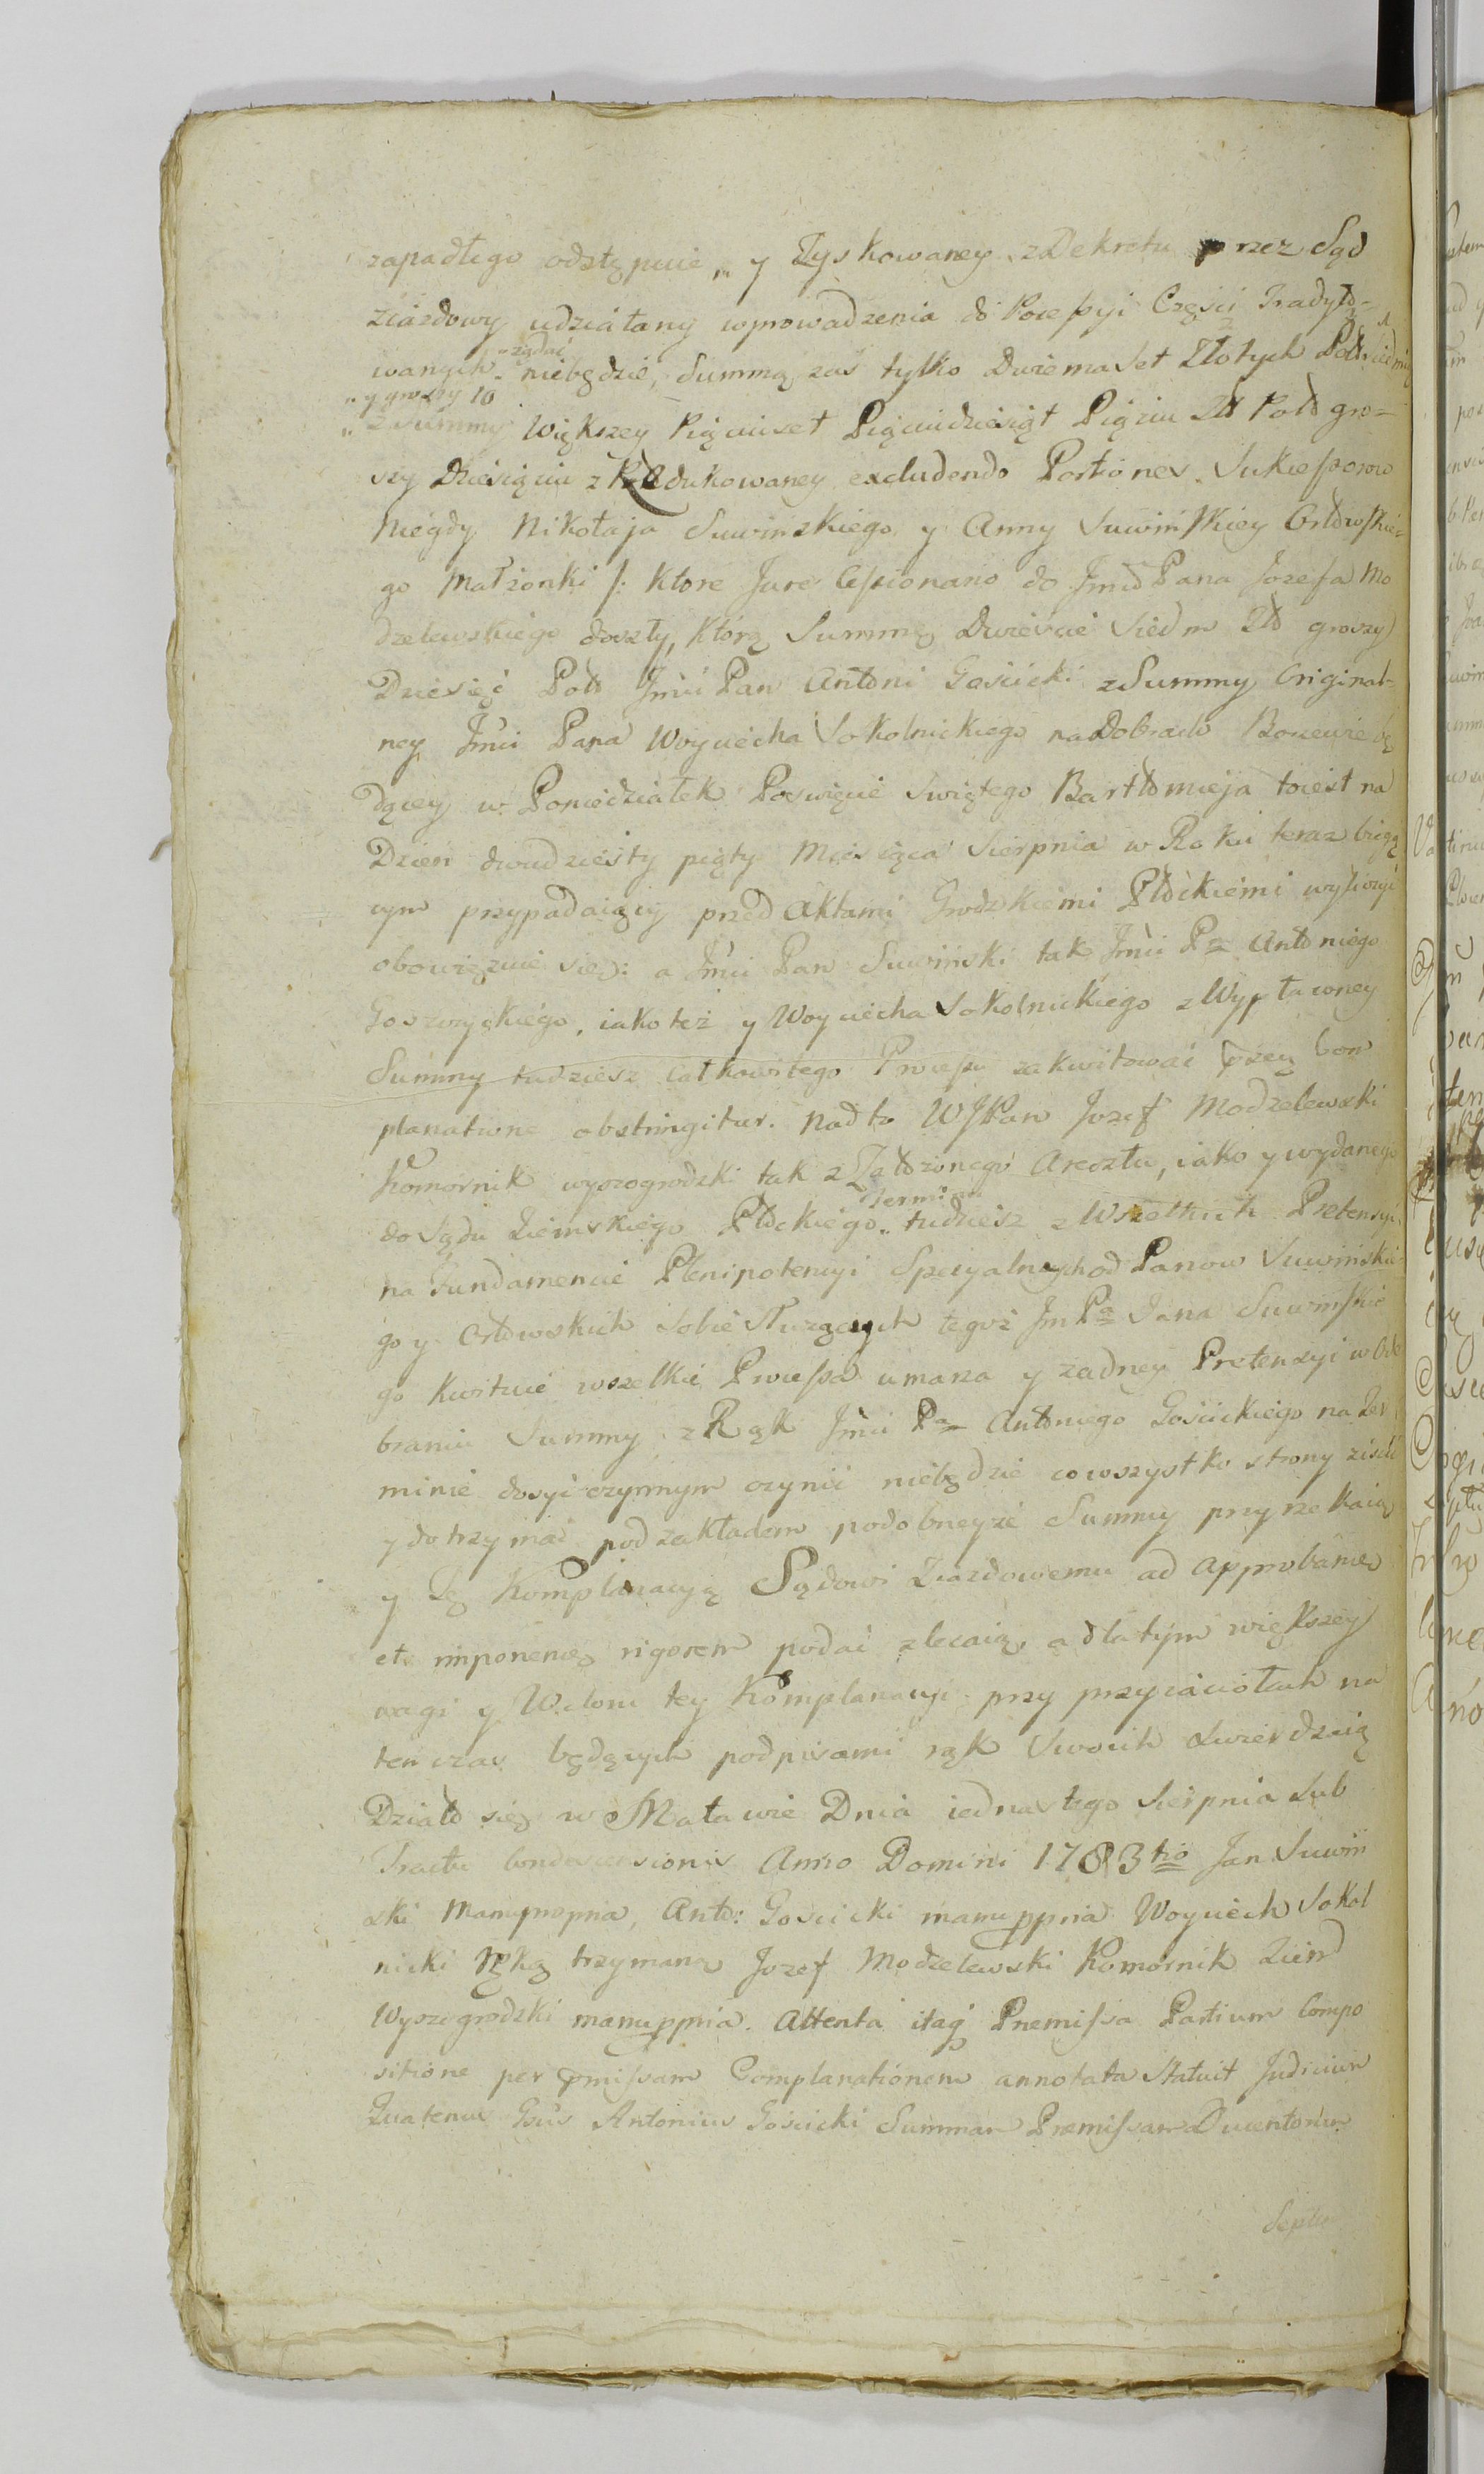 zapadłego odstępuie, „ y Zyskowaney z Dekretu przez Sąd
Ziazdowy udziałany wprowadzenia do Possessyi Części Tradyto-
wanych „żądać niebędzie, Summą zaś tylko Dwiema Set Złotych Pols: siedmią
„ y groszy 10
„ z Summy Większey Pięciuset Pięcidziesiąt Pięciu Zł Pols gro-
szy Dziesięciu zRedukowaney excludendo Portiones Sukcessorow
Niegdy Mikołaja Suwinskiego y Anny Suwińskiey Orłowskie-
go Małżonki /: ktore Jure Cessionario do Jmć Pana Jozefa Mo
dzelewskiego doszły, ktorą Summę Dwieście Siedm Zło groszy
Dziesięć Pols Jmći Pan Antoni Gościcki z Summy Original-
ney Jmći Pana Woyciecha Sokolnickiego na Dobrach Boncwie bę
dącey w Poniedziałek Poswięcie Swiętego Bartłomieja toiest na
Dzien dwudziesty piąty Miesiąca Sierpnia w Roku teraz bieżą
cym przypadaiący przed Aktami Grodzkiemi Płockiemi wyliczyć
obowięzuie się: a Jmći Pan Suwiński tak Jmći Pa Antoniego
Goszczyckiego, iako też y Woyciecha Sokolnickiego z Wypłaconey
Summy tudziesz całkowitego Processu zakwitować przez Com
planatione obstringitur. Nadto WJPan Jozef Modzelewski
Komornik wyszogrodzki tak z Założonego Aresztu, iako y wydanego
do Sądu Ziemskiego Płockiego „Terminu tudziesz z Wszelkich Pretensyi
na Fundamencie Plenipotencyi Specyalnych od Panow Suwińskie-
go y Orłowskich Sobie Służących tegoż Jm Pa Jana Suwińskie
go kwituie wszelkie Processa umarza y żadney Pretensyi w Ode
braniu Summy z Rąk Jmći Pa Antoniego Gościckiego na Ter
minie dosyć czynnym czynić niebędzie co wszystko strony ziścić
y dotrzymać pod zakładem podobneyże Summy przyrzekaią
y Tę Komplanacyą Sądowi Ziazdowemu ad Approbanda
et imponendę rigorem podać zlecaią, a dla tym większey
wagi y Waloru tey Komplanacyi przy przyiaciołach na
ten czas będących podpisami rąk Swoich stwierdzaią
Działo się w Małowie Dnia iednastego Sierpnia Sub
Tractu Condescensionis Anno Domini 1783tio Jan Suwin
ski Manupropria, Anto: Gościcki manuppria Woyciech Sokol
nicki Ręką trzymaną Jozef Modzelewski Komornik Ziem
Wyszogrodzki manuppria. Attenta itaq Premissa Partium Compo
sitione per pmissam Complanationem annotata Statuit Judicium
Quatenus Gsus Antonius Gościcki Summam Premissam Ducentorum
Septem